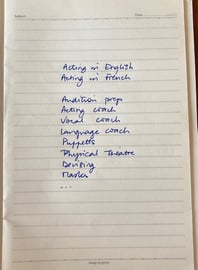 Subject:
Date:
Acting in English
Acting in French
Audition prep
Acting coach
Vocal coach
Language coach
Puppetts
Physical Theatre
Devising
Masks
...